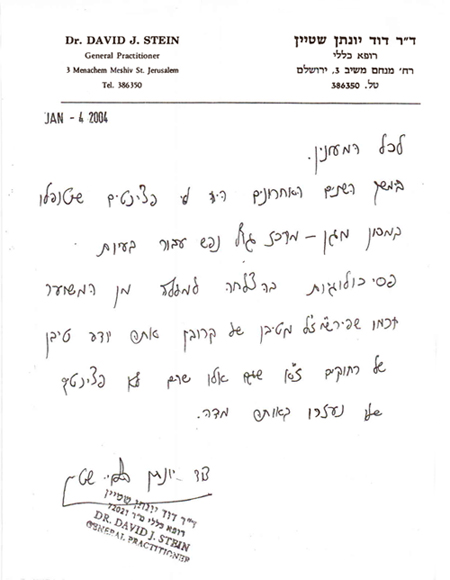 Dr. DAVID J. STEIN
General Practitioner
3 Menachem Meshiv St. Jerusalem
Tel. 386350
ד"ר דוד יונתן שטיין
רופא כללי
רח' מנחם משיב 3, ירושלם
טל. 386350
JAN - 4 2004
לכל המעונין.
במשך השנים האחרונים היו לי פצינטים שטופלו
במכון מגן – מרכז נפש עבור בעיות
פסיכולוגות בהצלחה למעלה מן המשוער
של קרובן אותם יודע טיבן
של רחוקים שגם אלו שהם לא
נעזרו באותם מדה.
דוד יונתן
ד"ר דוד יונתן שטיין
רופא כללי מ"ר 12021
DR. DAVID J. STEIN
GENERAL PRACTITIONER